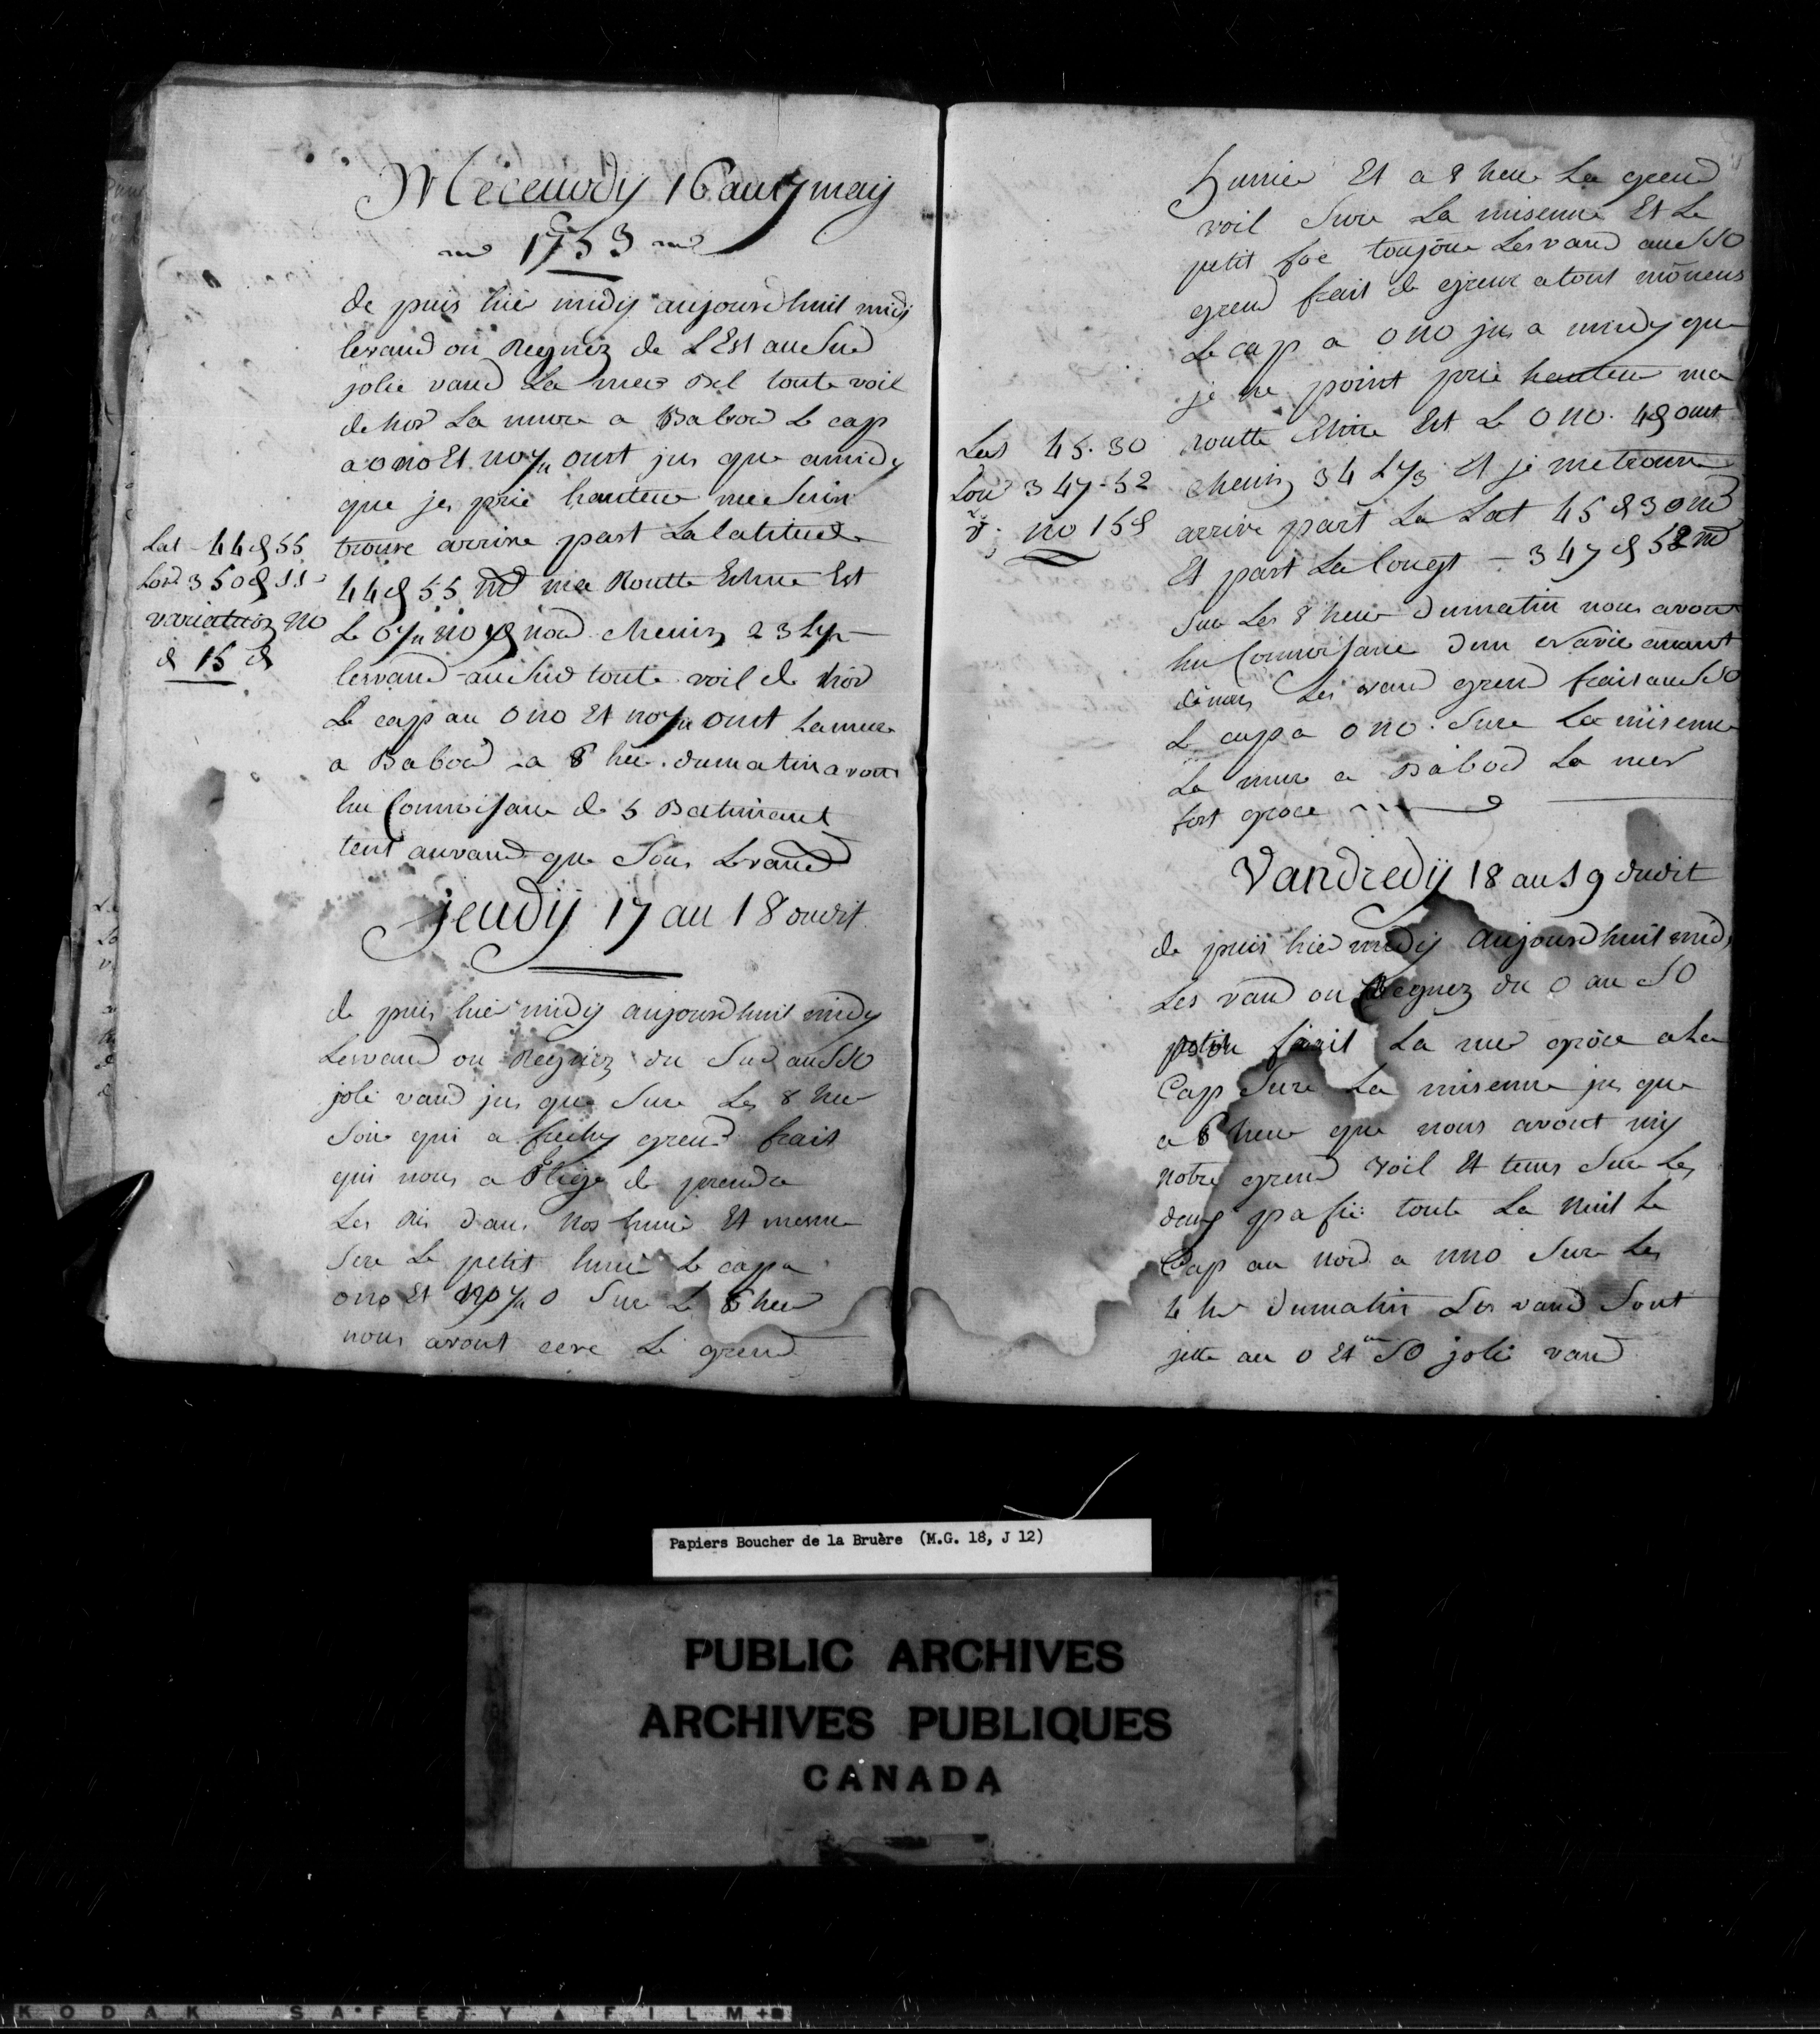 Meceurdy 16 au 17 maij
1753
de puis hie midij aujourdhuit midj
levand on Regniez de L'Est au Sud
jolie vand La mer bel toute voil
de hor La mure a Babord Le cap
a ono Et no ¼ ouist jus que a midy
que je prie hauteur me Suis
Lat 44 d 55
trouve arrive part La latitude
Lon 350 d 11
44 d 55 md ma Routte Estime Est
variation no
Le no d nord chemin 23
d 15 d
levand au Sud toute voil de hor
Le cap au ono Et no ¼ ouist La mure
a Babord a 8 heu dumatin avont
hu Connoisance de 5 Batimant
tent auvand que Sous Levand
jeudij 17 au 18 dudit
de puis hie midij aujourdhuit midy
Levand on Regniez du Sud au SSO
joli vand jus que Sure Les 8 heu
Soir qui a grend frait
qui nous a oblige de prendre
Les Ris dans nos hunié Et mesme
Sere Le petit hunié Le cap a
ono Et no ¼ o Sur Le 6 heu
nous avont cere Le grend
hunier Et a 8 heur La grend
voil Sure La misenne Et Le
petit foc toujour Les vand au SSO
grend frait de grenr a tout momens
Le cap a ono jus a midy que
je ne point prie hauteur ma
Lat 45.30
routte Estime Est Le ono 4 d ouist
Lon 347-52
chemin 34 L ⅓ Et je me trouve
v. no 15 d
arrive part La Lat 45 d 30 md
Et part La longt - 347 d 52 md
Sur Les 8 heur dumatin nous avont
hu Connoisance dun navire avant
de nous Les vand grend frait au SSO
Le cap a ono. Sure La misenne
La mure a Babord La mer
fort groce
Vandredij 18 au 19 dudit
de puis hie midij aujourdhuit midj
Les vand on Regnez du O au SO
petit frait La mer groce a La
Cap Sure La misenne jus que
a 8 heur que nous avont mij
notre grend voil Et tenu Sur Les
deux toute La nuit Le
Cap au nord a nno Sure Les
4 he dumatin Les vand Sont
jette au O Et au SO joli vand
Papiers Boucher de la Bruère (M.G. 18, J 12)
PUBLIC ARCHIVES
ARCHIVES PUBLIQUES
CANADA
KODAK SAFETY ▲ FILM